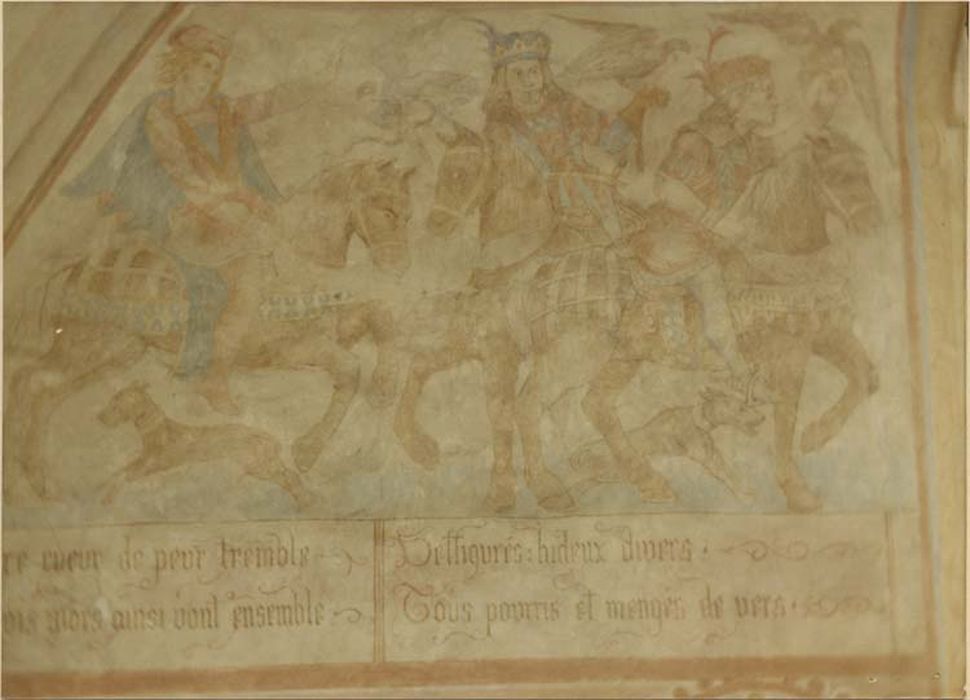 re cueur de peur tremble
ois mors ainsi vont ensemble
Deffigurés: hideux divers.
Tous pourris et mengés de vers.